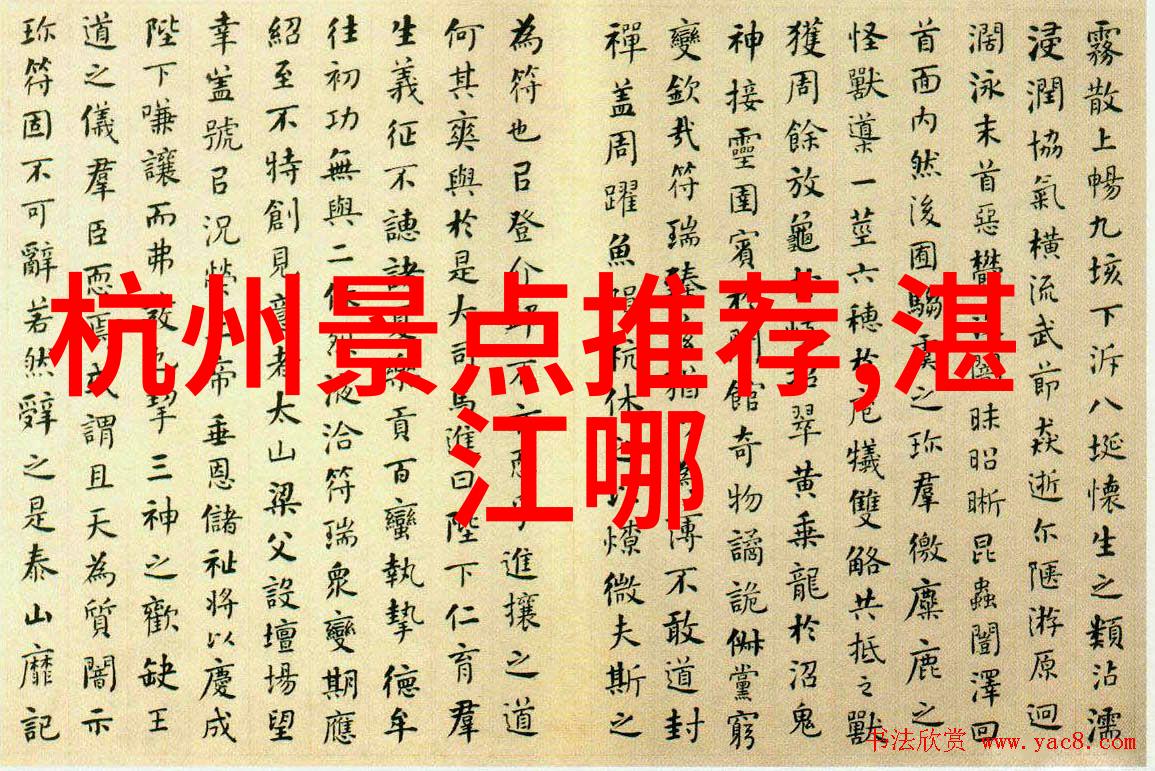 杭州景点推荐,湛
江哪
霧散上暢九垓下泝八埏懷生之類沾濡
浸潤協氣橫流武節猋逝尒陿游原迥
濶泳末首惡欝闇昧昭晰昆蟲闓澤回
首面内然後囿騶虞之珍羣徼麋鹿之
怪獸導一莖六穗於庖犧雙觡共抵之獸
獲周餘放龜招翠黄乗龍於沼鬼
神接靈圉賓館奇物譎詭俶黨窮
變欽哉符瑞臻為薄不敢道封
禪盖周躍魚隕杭休之燎微夫斯之
為符也㠯登介邱不進攘之道
何其爽與於是大司馬進曰陛下仁育羣
生義征不譓諸夏樂貢百蠻執摯德牟
往初功無與二休烈液洽符瑞衆變期應
紹至不特創見意者太山梁父設壇場望
幸盖號㠯况榮上帝垂恩儲祉將以慶成
陛下嗛讓而弗發也挈三神之歡缺王
道之儀羣臣恧焉或謂且天為質闇示
珍符固不可辭若然辤之是泰山靡記
书法欣赏 www.yac8.com